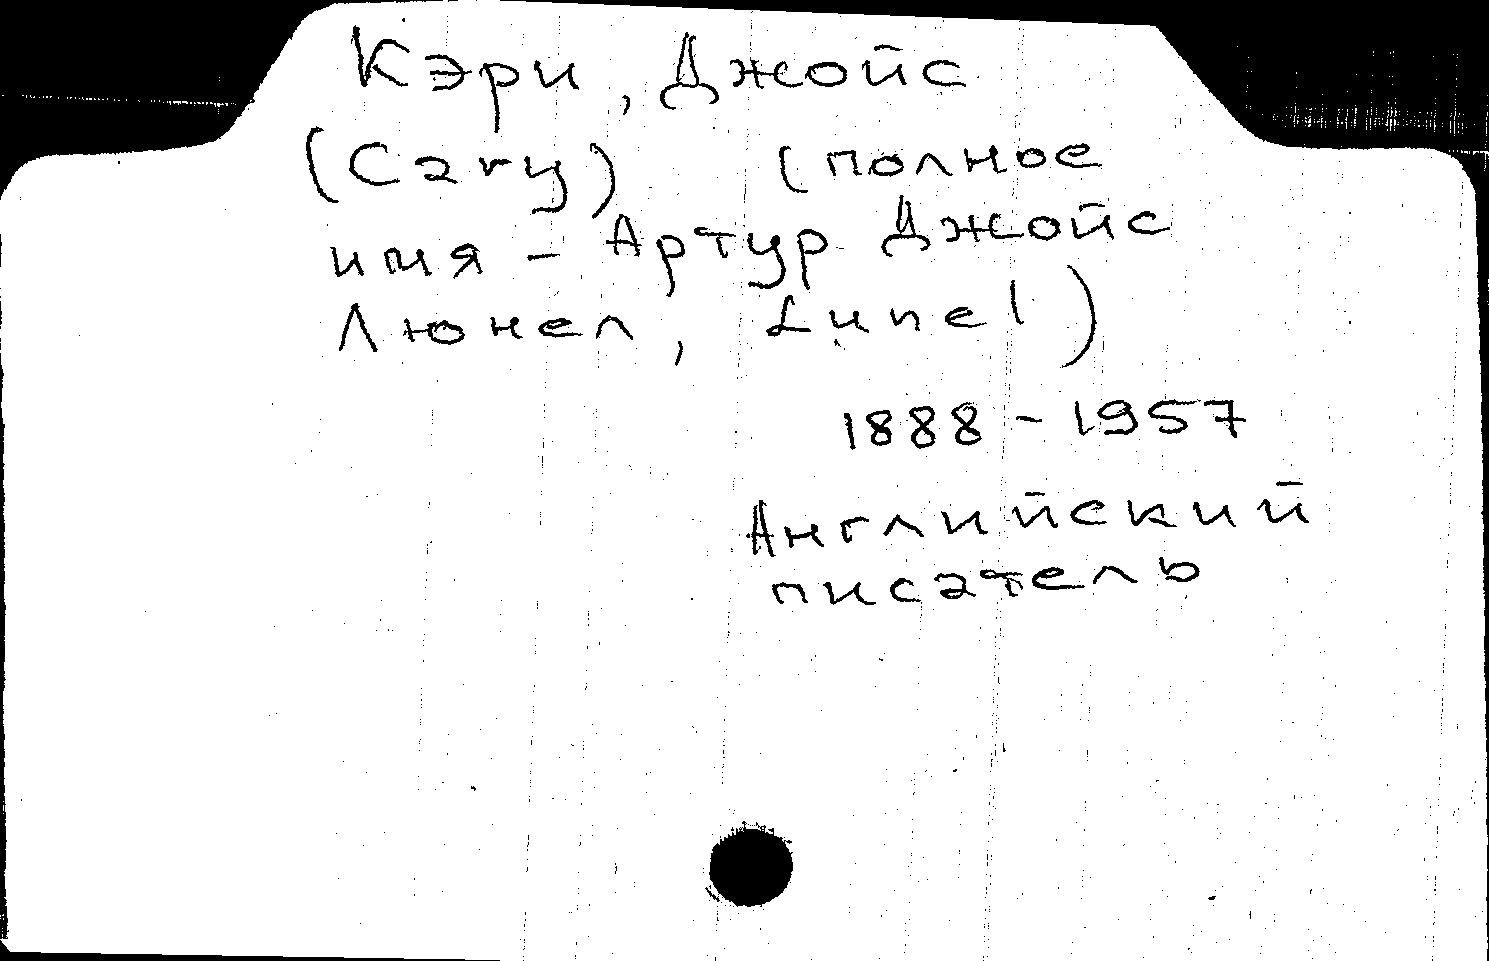 Кэри, Джойс
(Cary) (полное
имя - Артур Джойс
Люнел, Lunel)
1888 - 1957
Английский
писатель